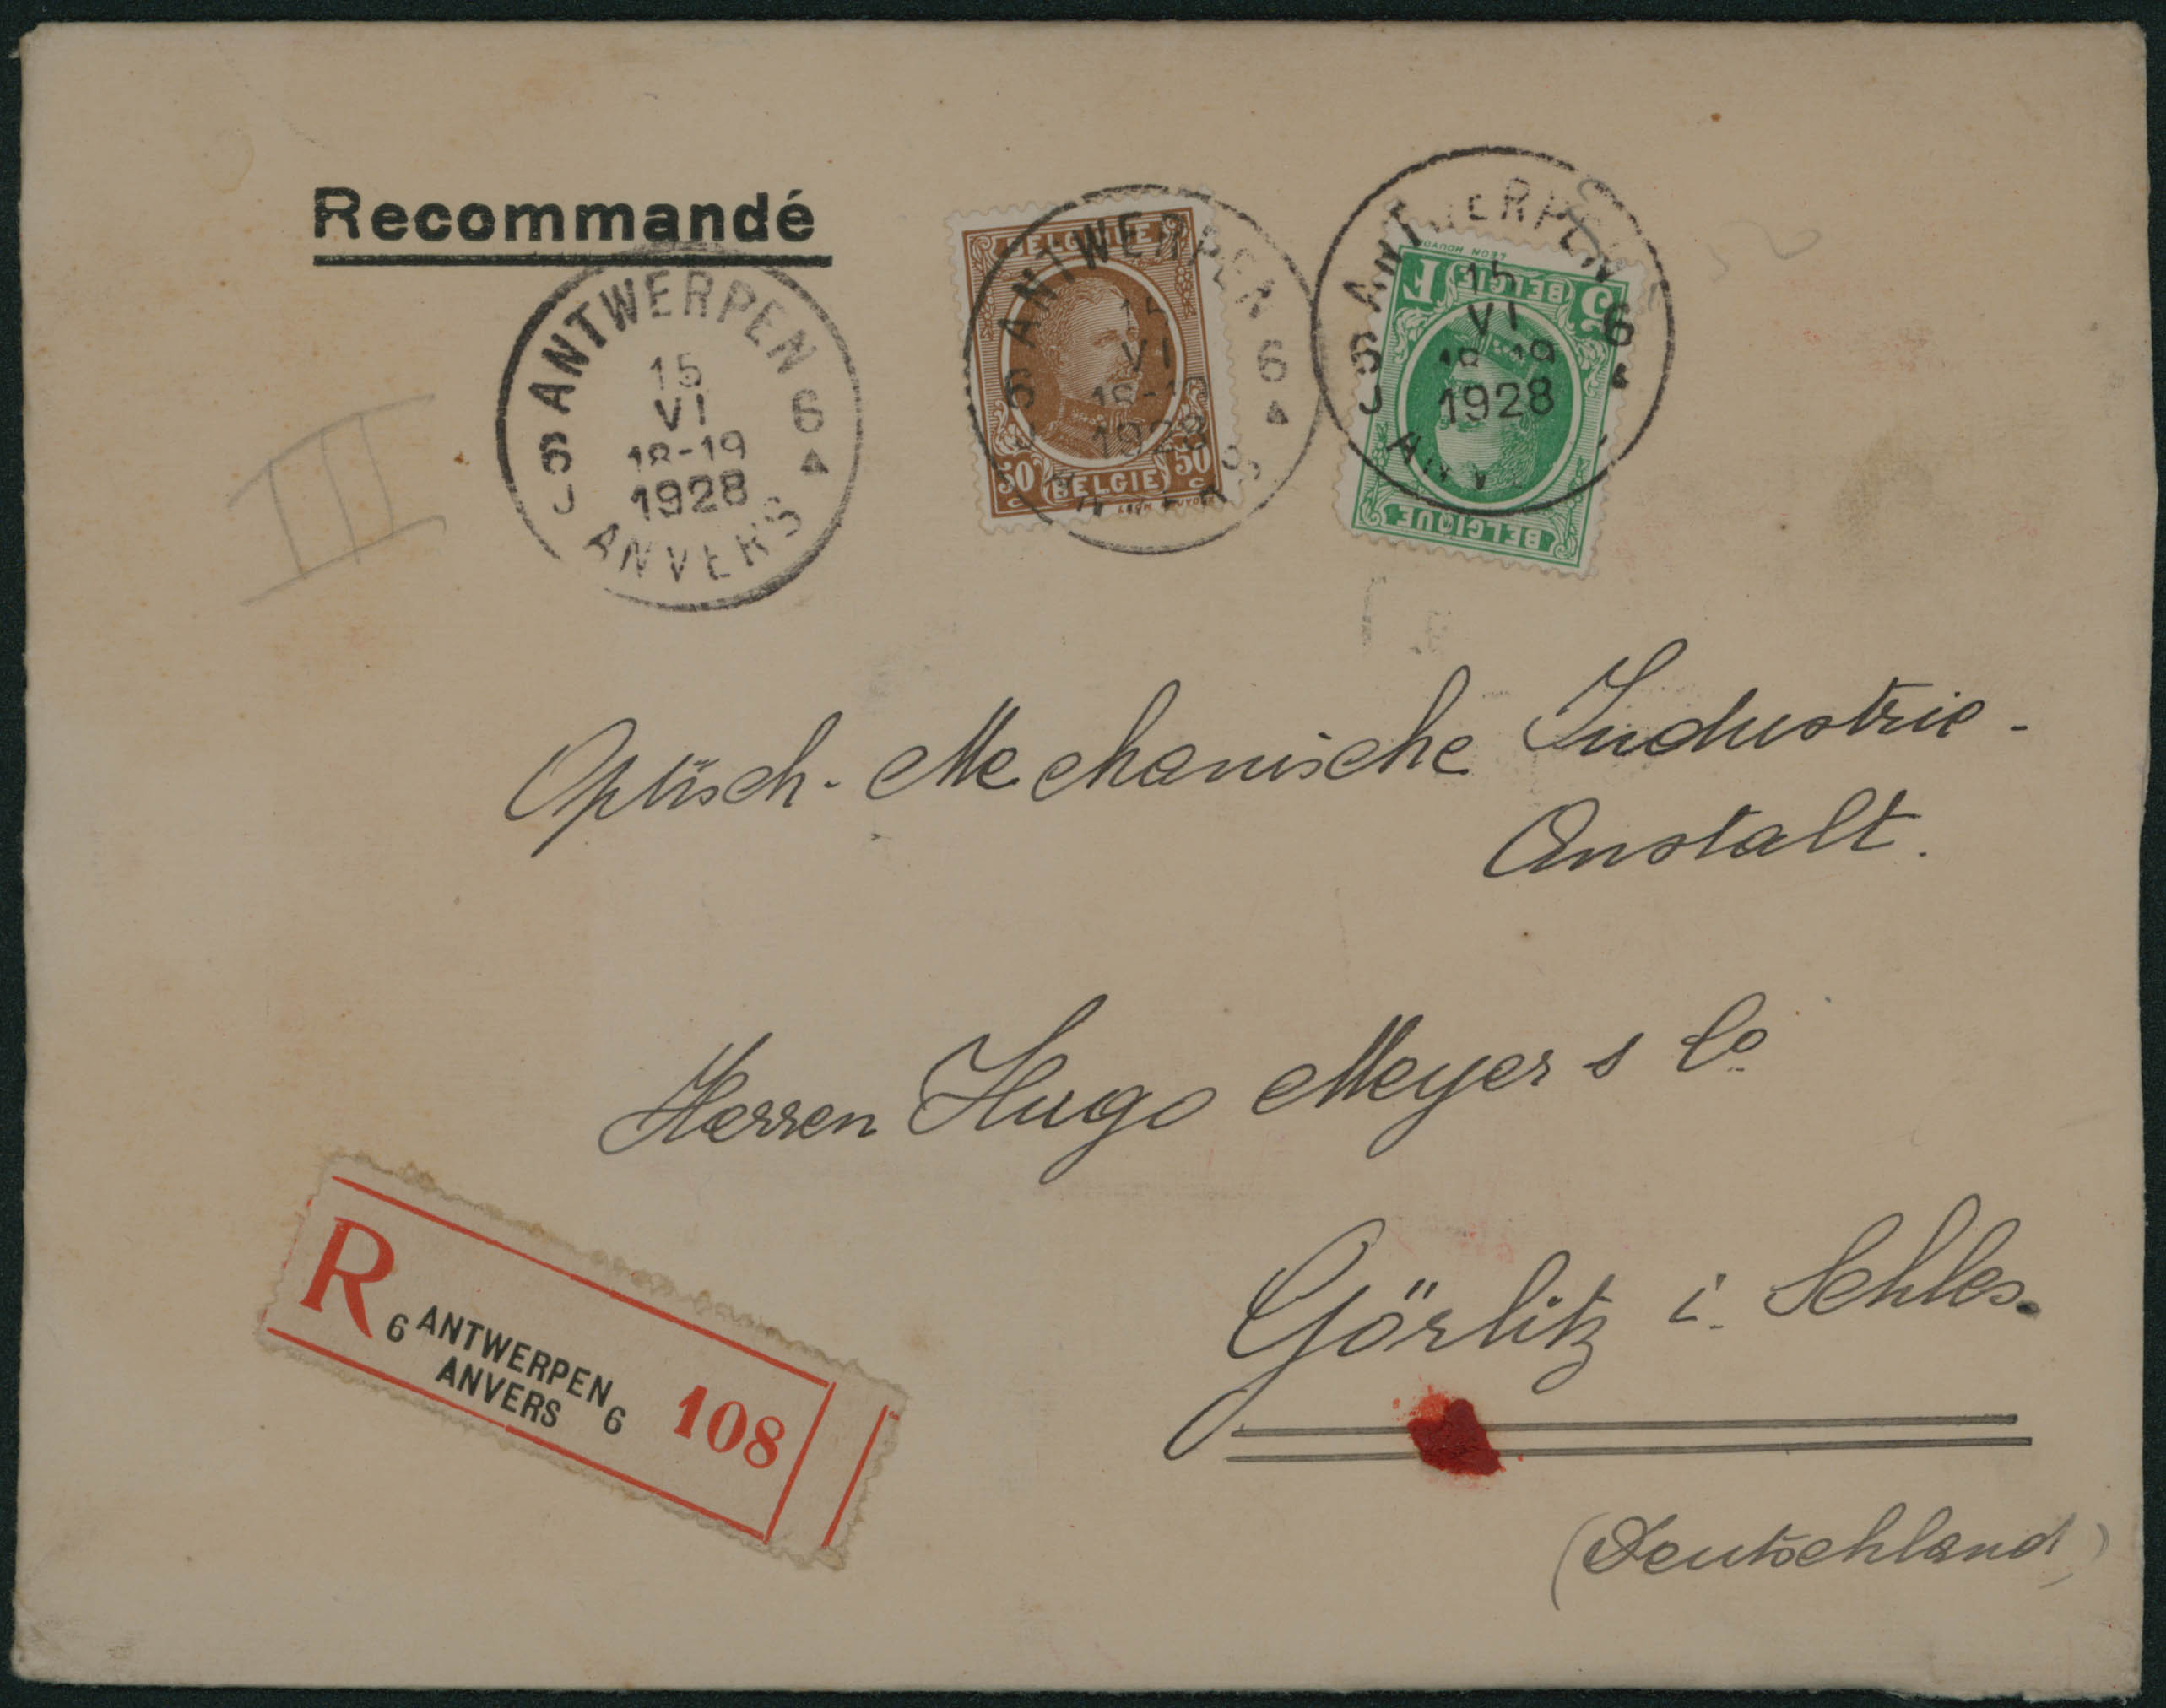 Recommandé
6 ANTWERPEN 6
15
VI
18-19
1928
J ANVERS
BELGIQUE
50 BELGIË 50
c c
ANTWERPEN 6
15
VI
18-19
1928
5 BELGIË F
LEON HOUYOUX
BELGIQUE
6 ANTWERPEN 6
15
VI
18-19
1928
J
III
Optisch-Mechanische Industrie-
Anstalt.
Herren Hugo Meyer & Co.
Görlitz i. Schles.
(Deutschland)
R 6 ANTWERPEN 6 108
ANVERS